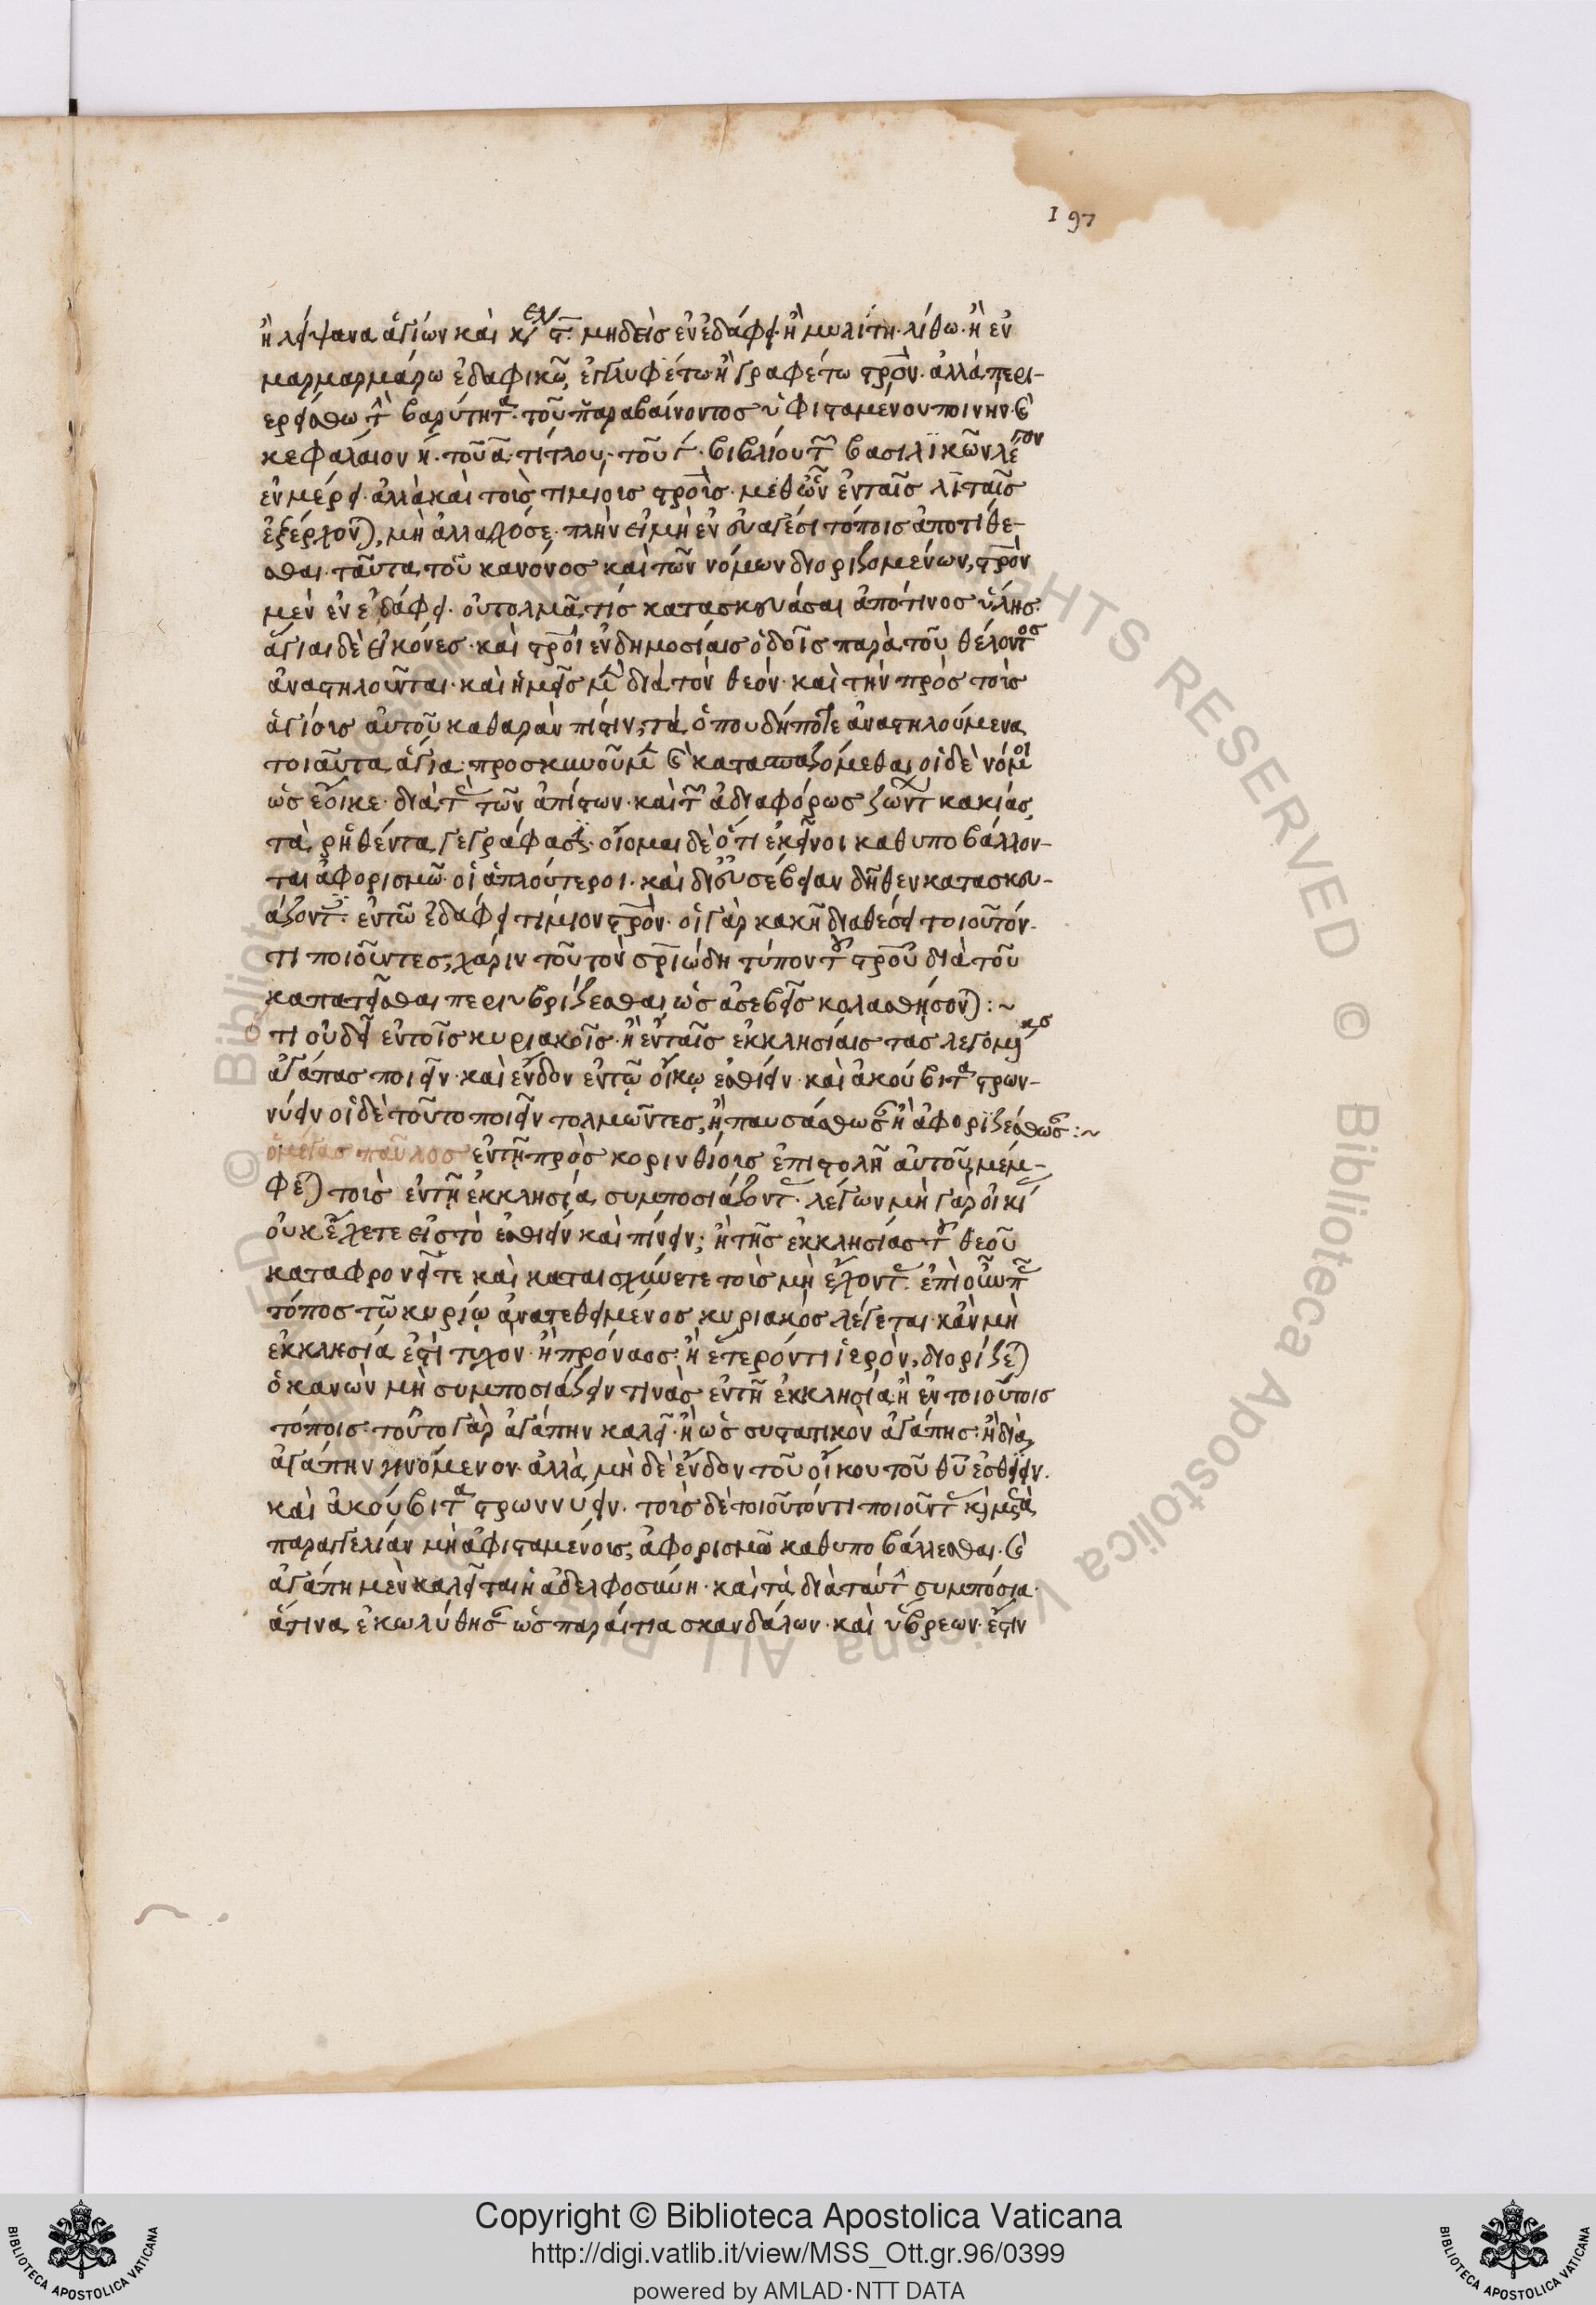 197
ἢ λείψανα ἁγίων καὶ μηδεὶς ἐν ἐδάφει ἢ μυλίτη λίθω ἢ ἐν
μαρμαρμάρω ἐδαφικῶ ἐγγλυφέτω ἢ γραφέτω στρὸν ἀλλὰ περι-
εργέσθω βαρύτητα τοῦ παραβαίνοντος ὑφισταμένου ποινήν
κεφαλαίον η τοῦ α τίτλου τοῦ βιβλίου τῶν βασιλϊκῶν λέγον
ἐν μέρει ἀλλὰ καὶ τοῖς τιμίοις στροῖς μεθῶν ἐν ταῖς λιταῖς
ἐξέρχονται, μὴ ἀλλαχόσε πλὴν εἰ μὴ ἐν εὐαγέσι τόποις ἀποτίθε-
σθαι ταῦτα τοῦ κανόνος καὶ τῶν νόμων διοριζομένων, στρὸν
μὲν ἐν ἐδάφει οὐ τολμᾶ τίς κατασκευάσαι ἀπό τινος ὕλης
ἅγιαι δὲ εἰκόνες καὶ στροὶ ἐν δημοσίαις ὁδοῖς παρὰ τοῦ θέλοντος
ἀναστηλοῦνται καὶ ἡμεῖς μὲν διὰ τὸν θεόν καὶ τὴν πρὸς τοῖς
ἁγίοις αὐτοῦ καθαρὰν πίστιν, τὰ ὁπουδήποτε ἀναστηλούμενα
τοιαῦτα ἅγια προσκυνοῦμεν καὶ κατασπαζόμεθα, οἱ δὲ νόμοι
ὡς ἔοικε διὰ τὰς τῶν ἀπίστων καὶ τῶν ἀδιαφόρως ζώντων κακίας
τὰ ῥηθέντα γεγράφασι οἶομαι δὲ ὅτι ἐκεῖνοι καθυποβάλλον-
ται ἀφορισμῶ οἱ ἁπλούτεροι καὶ δι εὐσέβειαν δῆθεν κατασκευ-
άζοντες ἐν τῶ ἐδάφει τίμιον στρόν οἱ γὰρ κακῆ διαθέσει τοιοῦτόν
τι ποιοῦντες, χάριν τοῦ τὸν στριώδη τύπον τοῦ στροῦ διὰ τοῦ
καπατεῖσθαι περιυβρίζεσθαι, ὡς ἀσεβεῖς κολασθήσονται :~
ὅτι οὐ δεῖ ἐν τοῖς κυριακοῖς ἢ ἐν ταῖς ἐκκλησίαις τὰς λεγομένας
ἀγάπας ποιεῖν καὶ ἔνδον ἐν τῷ οἴκῳ ἐσθίειν καὶ ἀκούβιτα στρων-
νύειν οἱ δὲ τοῦτο ποιεῖν τολμῶντες, ἢ παυσάσθωσαν ἢ ἀφοριζέσθωσαν :~
ὁ μέγας παῦλος ἐν τῇ πρὸς κορινθίοις ἐπιστολῆ αὐτοῦ, μέμ-
φεται τοῖς ἐν τῇ ἐκκλησία συμποσιάζοντας λέγων μὴ γὰρ οἰκίας
οὐκ ἔχετε εἰς τὸ ἐσθίειν καὶ πίνειν; ἢ τῆς ἐκκλησίας τοῦ θεοῦ
καταφρονεῖτε καὶ καταισχύνετε τοῖς μὴ ἔχοντας ἐπὶ οὖν πᾶς
τόπος τῶ κυρίω ἀνατεθειμένος κυριακὸς λέγεται κἂν μὴ
ἐκκλησία ἐστὶ τυχὸν ἢ πρόναος ἢ ἕτερόν τι ἱερὸν, διορίζεται
ὁ κανὼν μὴ συμποσιάζειν τινὰς ἐν τῇ ἐκκλησία ἢ ἐν τοιούτοις
τόποις τοῦτο γὰρ ἀγάπην καλεῖ ἢ ὡς συστατικὸν ἀγάπης ἢ διὰ
ἀγάπην γινόμενον ἀλλὰ μὴ δὲ ἔνδον τοῦ οἴκου τοῦ θῦ ἐσθίειν
καὶ ἀκούβιτα στρωννύειν τοῖς δὲ τοιοῦτόν τι ποιοῦντας καὶ μετὰ
παραγγελίαν μὴ ἀφισταμένοις, ἀφορισμῶ καθυποβάλλεσθαι καὶ
ἀγάπη μὲν καλεῖται ἡ ἀδελφοσύνη καὶ τὰ διὰ ταύτην συμπόσια
ἅτινα ἐκωλύθησαν ὡς παραίτια σκανδάλων καὶ ὕβρεων ἔστιν
© Biblioteca Apostolica Vaticana ALL RIGHTS RESERVED
Copyright © Biblioteca Apostolica Vaticana
http://digi.vatlib.it/view/MSS_Ott.gr.96/0399
powered by AMLAD·NTT DATA
BIBLIOTECA APOSTOLICA VATICANA
BIBLIOTECA APOSTOLICA VATICANA